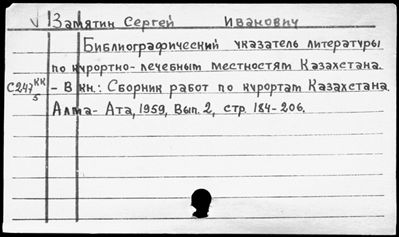 √ Замятин Сергей Иванович
Библиографический указатель литературы
по курортно-лечебным местностям Казахстана.
С247 КК/5 - В кн.: Сборник работ по курортам Казахстана.
Алма-Ата, 1959, Вып. 2, стр. 184-206.